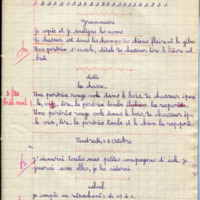 Grammaire
Je copie et je souligne les noms
Le chasseur est dans les champs le chien flaire le gibier
Une perdrix s'envole, détale le chasseur tire, le lièvre est
Dictée
La chasse.
Une perdrix rouge vole dans le bois, le chasseur épau
le, vise, tire, la perdrix tombe
Une perdrix rouge vole dans le bois, le chasseur épau
le, vise, tire, la perdrix tombe et le chien la rapporte
Vendredi 3 Octobre
J'aimerai toutes mes petites compagnes d'école. Je
jouerai avec elles, je les aiderai
Calcul
Je compte en retranchant de